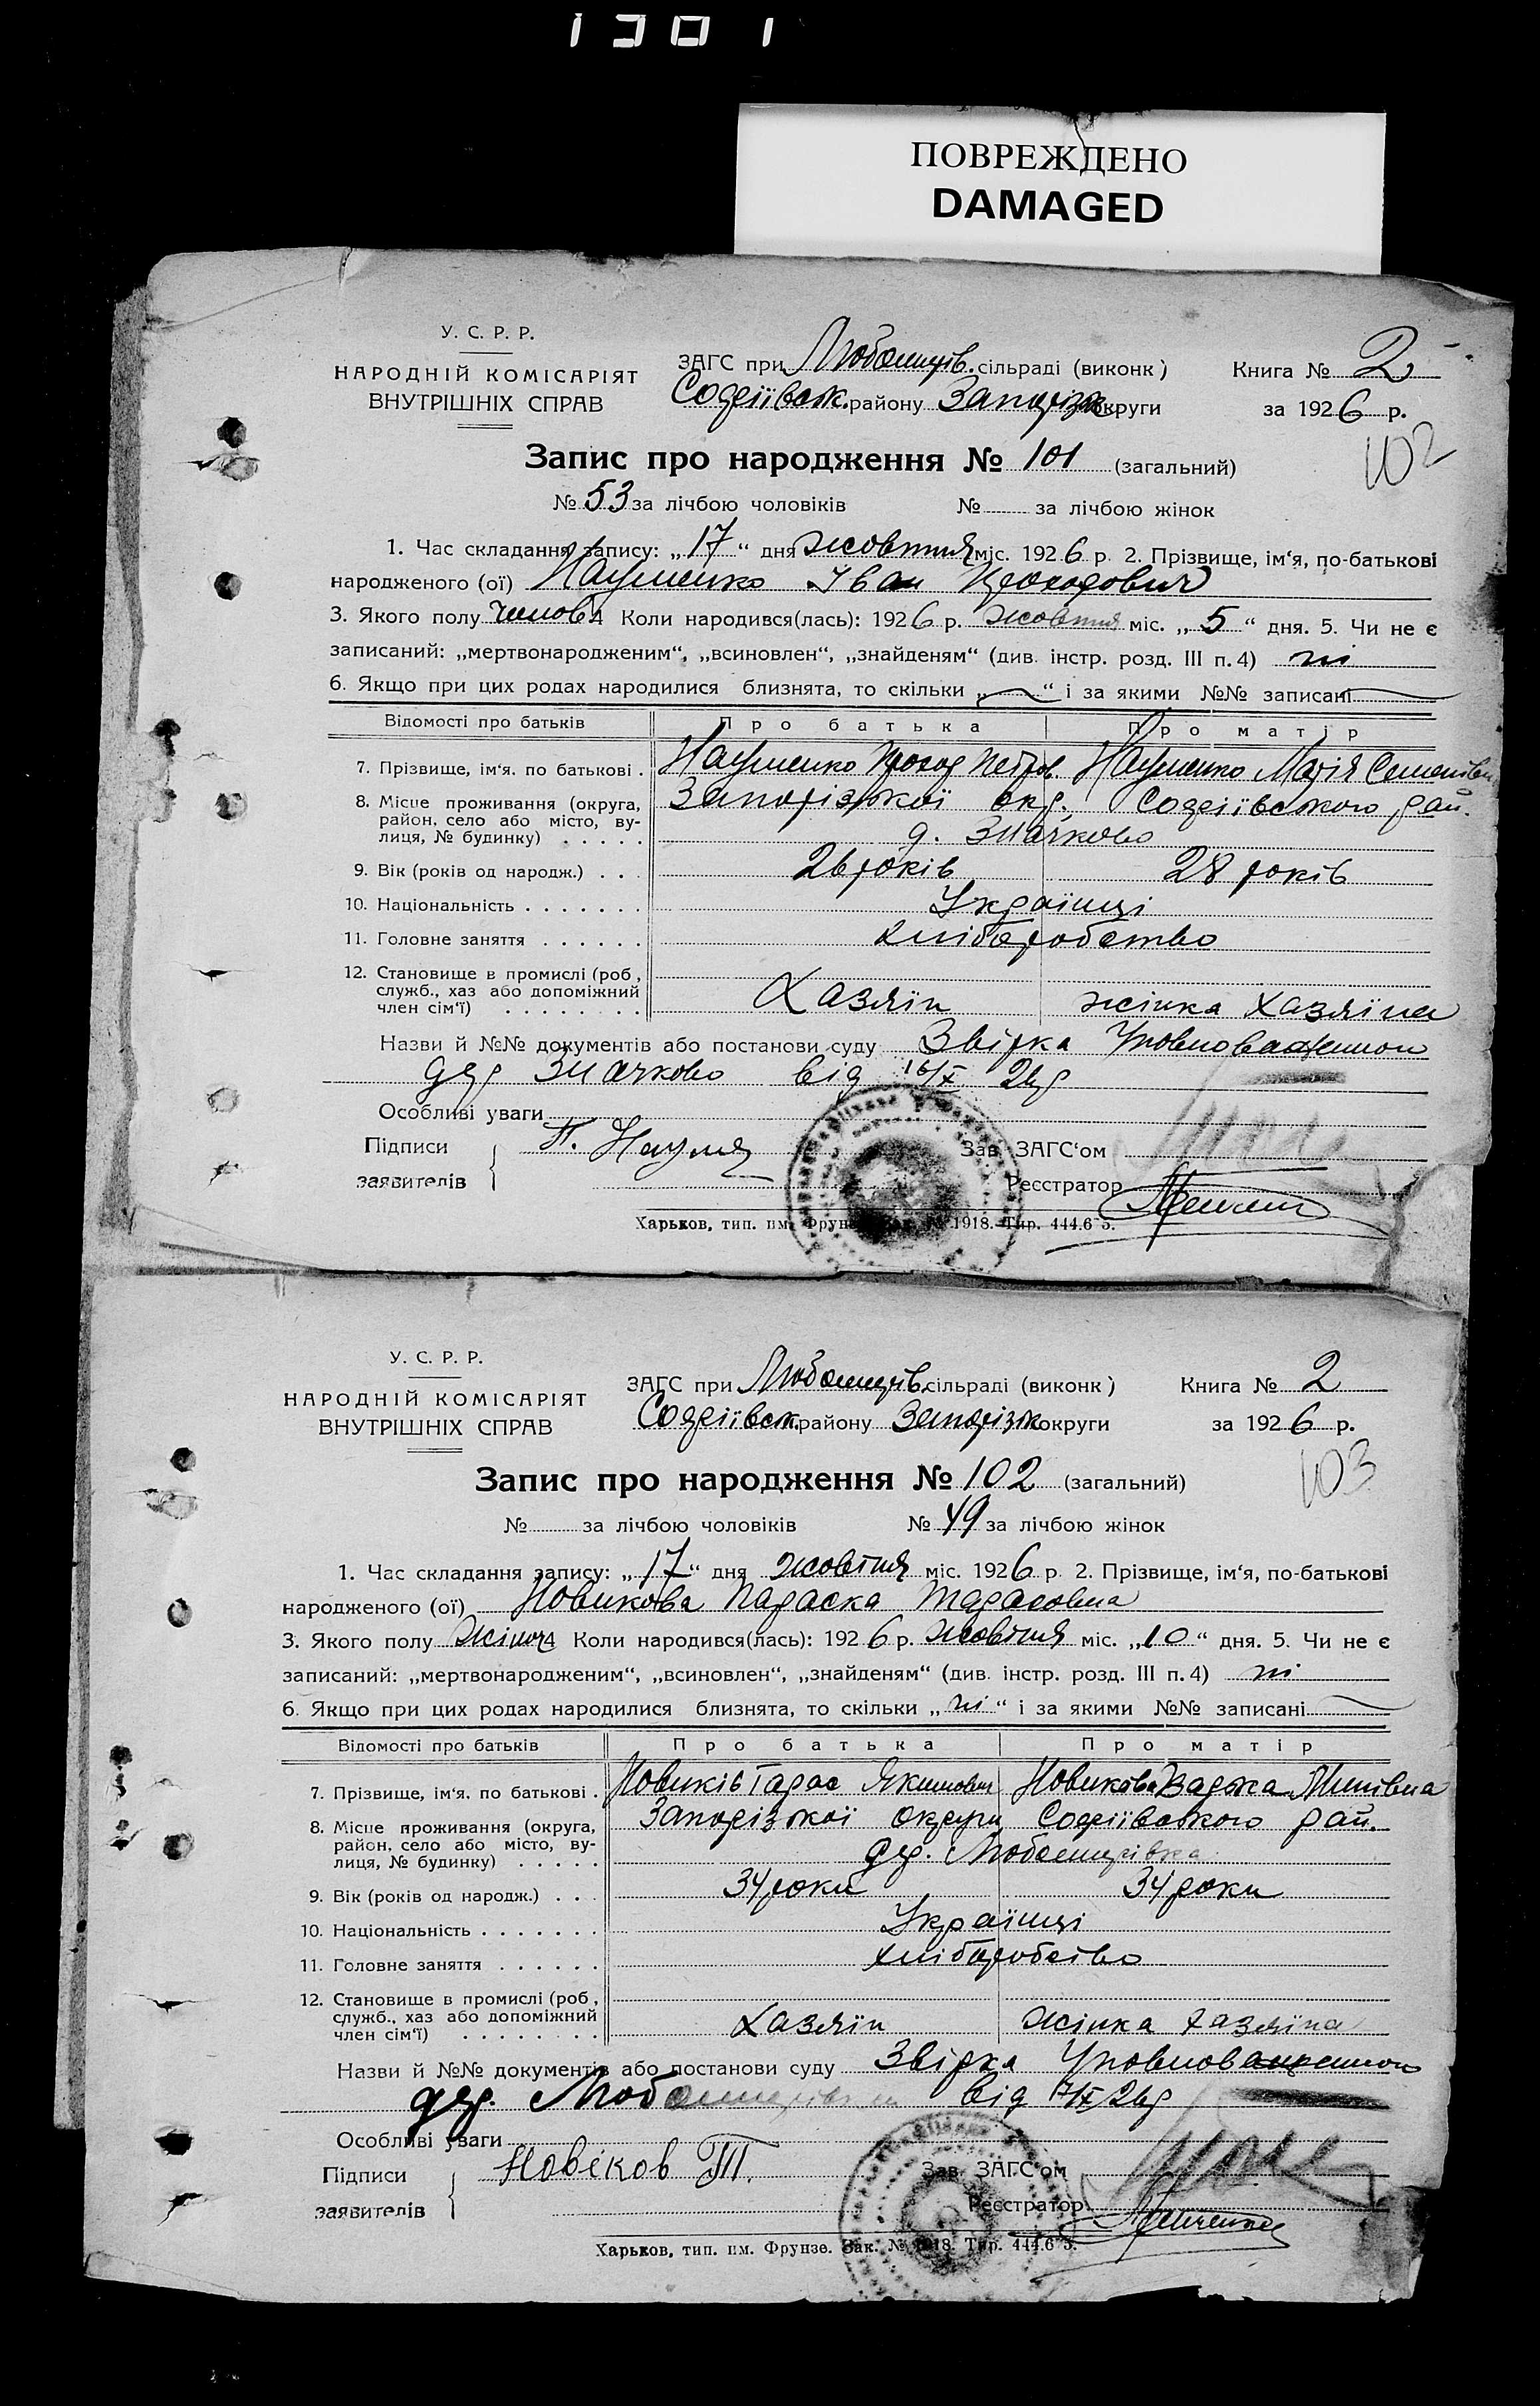 1301
ПОВРЕЖДЕНО
DAMAGED
У. С. Р. Р.
НАРОДНІЙ КОМІСАРІЯТ
ВНУТРІШНІХ СПРАВ
ЗАГС при Любомирів. сільраді (виконк)
Софіївськ. району Запоріжж округи
Книга № 2
за 1926 р.
102
Запис про народження № 101 (загальний)
№ 53 за лічбою чоловіків № за лічбою жінок
1. Час складання запису: „17“ дня жовтня міс. 1926 р. 2. Прізвище, ім‘я, по-батькові
народженого (ої) Науменко Іван Прохорович
3. Якого полу чолов 4 Коли народився(лась): 1926 р. жовтня міс. „5“ дня. 5. Чи не є
записаний: „мертвонародженим“, „всиновлен“, „знайденям“ (див. інстр. розд. III п. 4) ні
6. Якщо при цих родах народилися близнята, то скільки „ “ і за якими №№ записані
Відомості про батьків Про батька Про матір
7. Прізвище, ім‘я. по батькові . Науменко Прохор Петров. Науменко Марія Семенівн
8. Місце проживання (округа, район, село або місто, вулиця, № будинку) Запорізької окр. Софіївського рай.
д. Значково
9. Вік (років од народж.) 26 років 28 років
10. Національність Українці
11. Головне заняття хліборобство
12. Становище в промислі (роб, служб., хаз або допоміжний член сім‘ї) Хазяїн жінка хазяїна
Назви й №№ документів або постанови суду Звірка Уповноваженого
дер Значково від 16/X 26р
Особливі уваги
Підписи П. Наумен Зав. ЗАГС‘ом
заявителів Реєстратор
Харьков, тип. им. Фрунзе. Зак. № 1918. Тир. 444.675.
У. С. Р. Р.
НАРОДНІЙ КОМІСАРІЯТ
ВНУТРІШНІХ СПРАВ
ЗАГС при Любомирів. сільраді (виконк)
Софіївськ. району Запоріжж округи
Книга № 2
за 1926 р.
103
Запис про народження № 102 (загальний)
№ за лічбою чоловіків № 49 за лічбою жінок
1. Час складання запису: „17“ дня жовтня міс. 1926 р. 2. Прізвище, ім‘я, по-батькові
народженого (ої) Новикова Параска Тарасовна
3. Якого полу жіноч 4 Коли народився(лась): 1926 р. жовтня міс. „10“ дня. 5. Чи не є
записаний: „мертвонародженим“, „всиновлен“, „знайденям“ (див. інстр. розд. III п. 4) ні
6. Якщо при цих родах народилися близнята, то скільки „ні“ і за якими №№ записані
Відомості про батьків Про батька Про матір
7. Прізвище, ім‘я. по батькові . Новиків Тарас Якимович Новикова Варька
8. Місце проживання (округа, район, село або місто, вулиця, № будинку) Запорізької округи Софіївського рай.
дер. Любомирівка
9. Вік (років од народж.) 34 роки 34 роки
10. Національність Українці
11. Головне заняття хліборобство
12. Становище в промислі (роб, служб., хаз або допоміжний член сім‘ї) Хазяїн жінка хазяїна
Назви й №№ документів або постанови суду Звірка Уповноваженого
дер. Любомирівки від 26р
Особливі уваги
Підписи Новіков Т. Зав. ЗАГС‘ом
заявителів Реєстратор
Харьков, тип. им. Фрунзе. Зак. № 1918. Тир. 444.675.